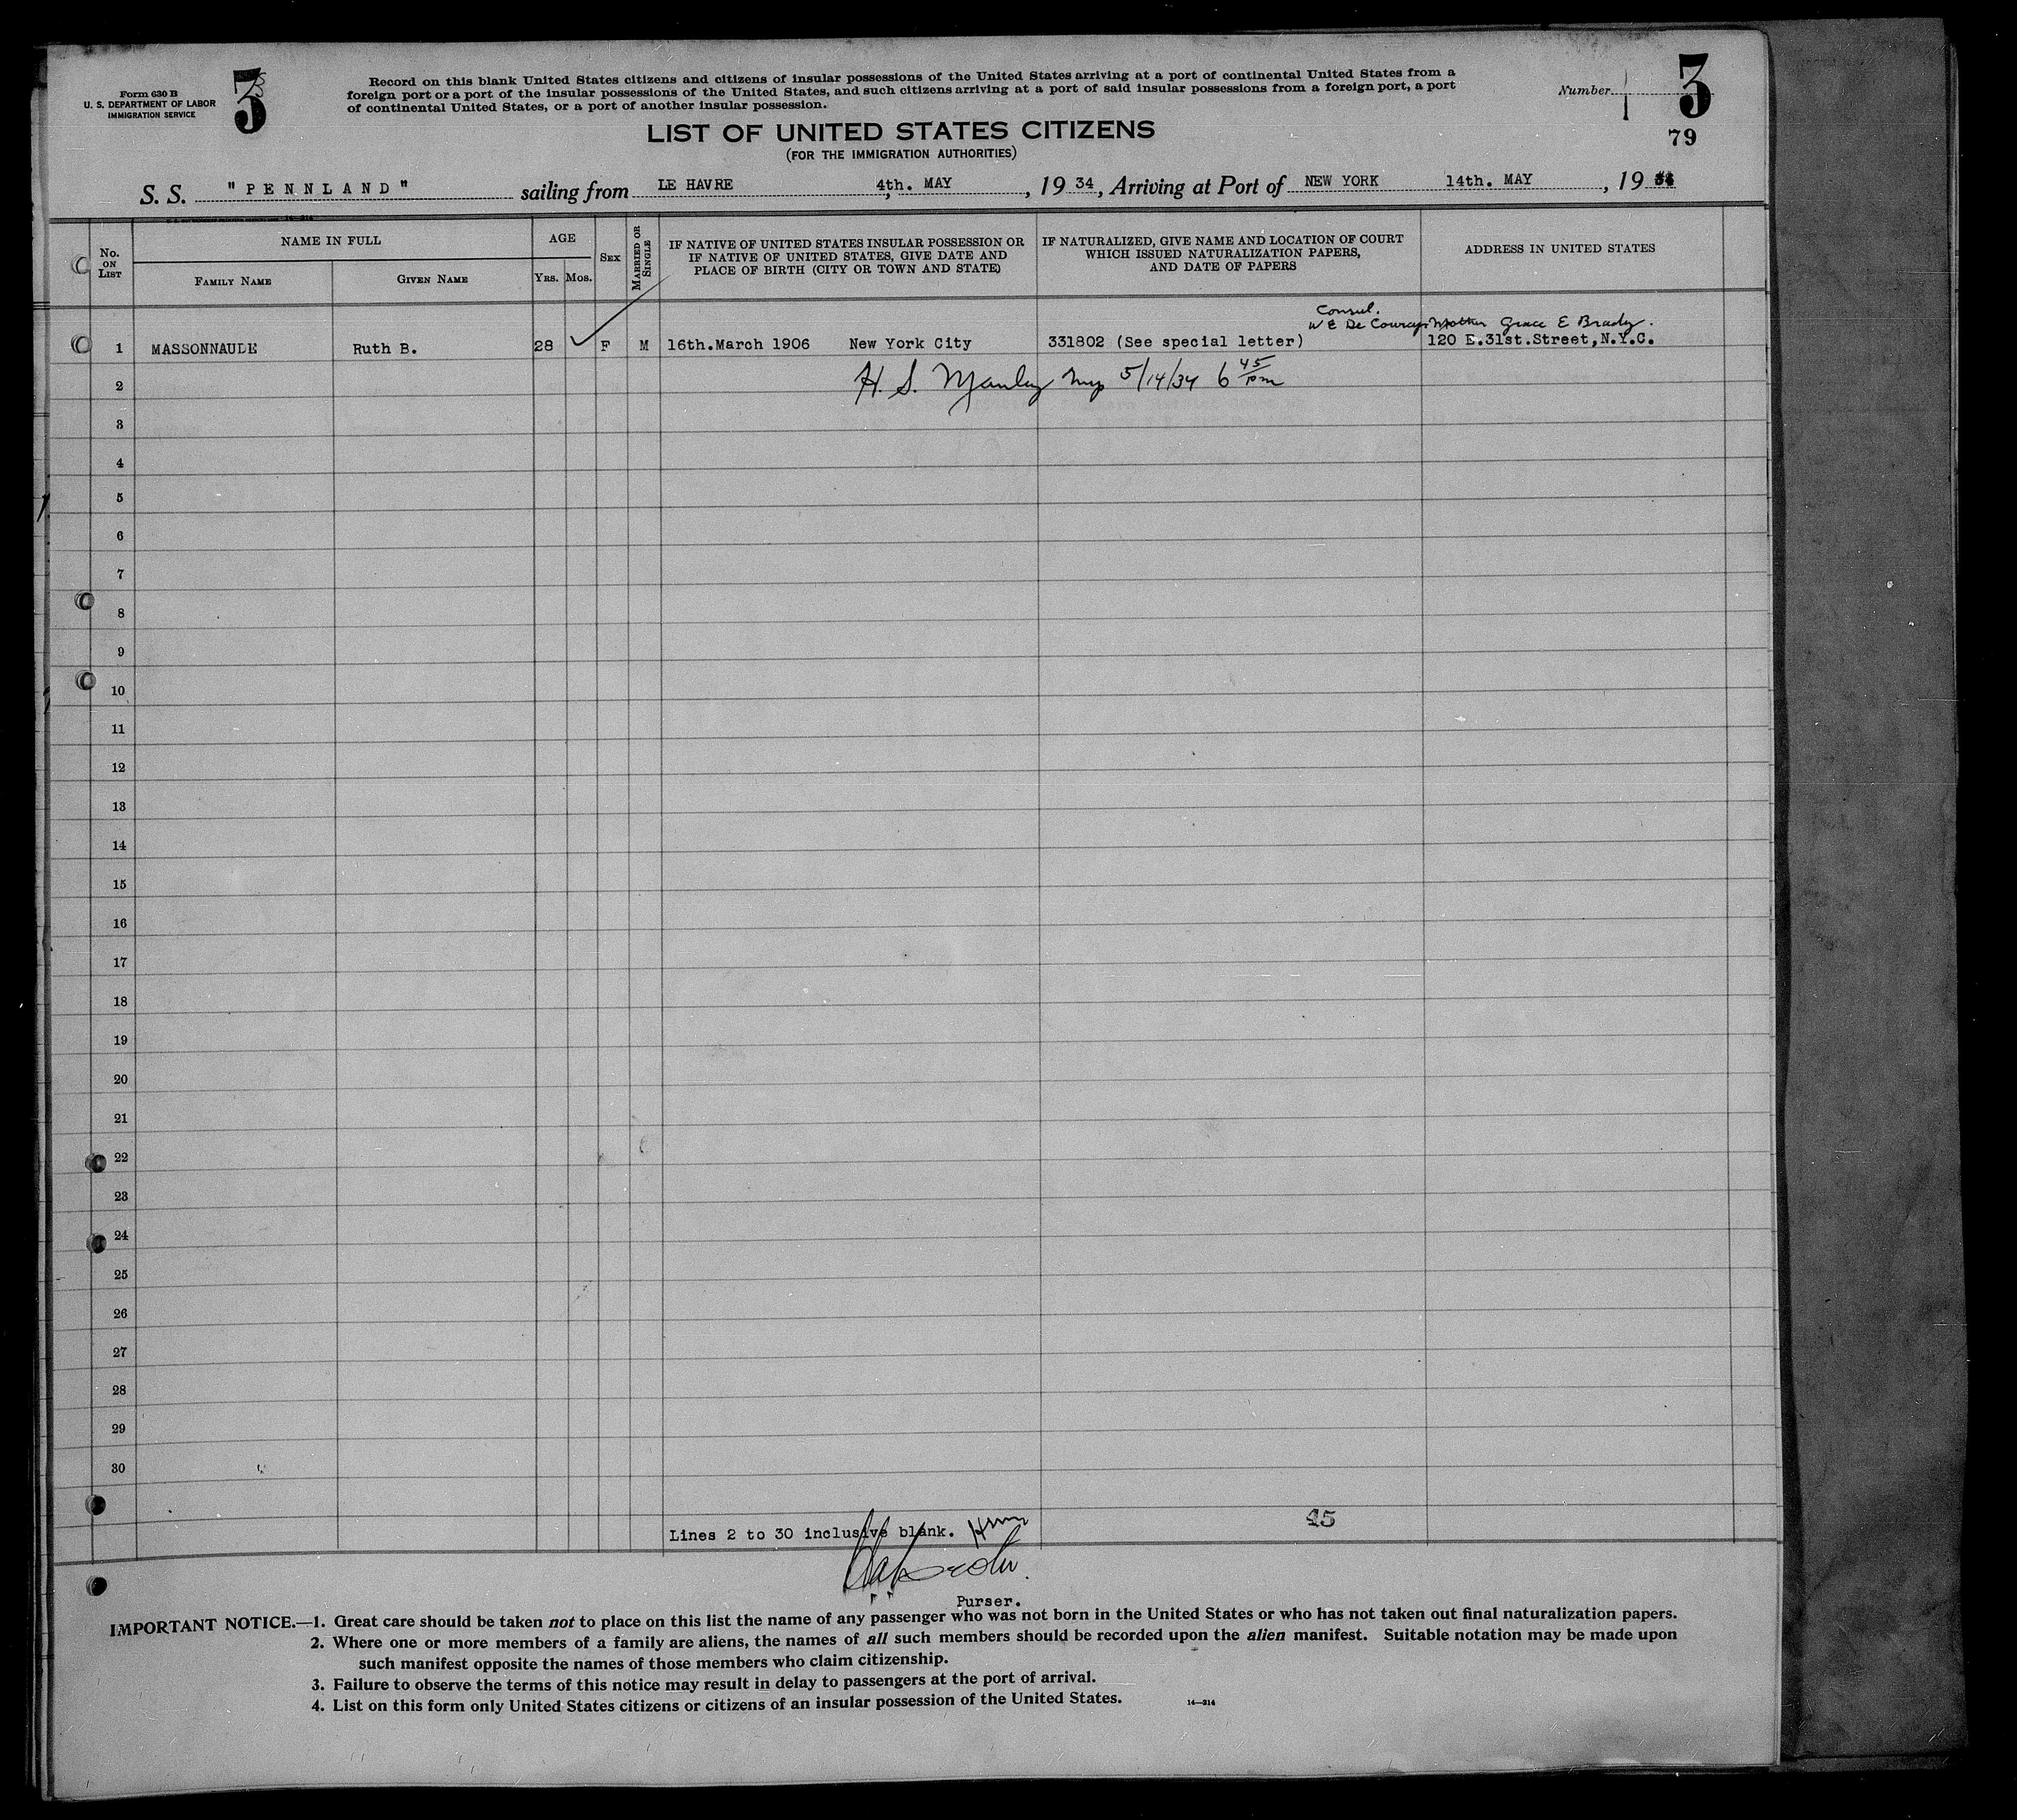 Form 630 B
U. S. DEPARTMENT OF LABOR
IMMIGRATION SERVICE
3
Record on this blank United States citizens and citizens of insular possessions of the United States arriving at a port of continental United States from a
foreign port or a port of the insular possessions of the United States, and such citizens arriving at a port of said insular possessions from a foreign port, a port
of continental United States, or a port of another insular possession.
Number 3
79
LIST OF UNITED STATES CITIZENS
(FOR THE IMMIGRATION AUTHORITIES)
S. S. "PENNLAND" sailing from LE HAVRE 4th. MAY, 1934, Arriving at Port of NEW YORK 14th. MAY, 1934
No. ON LIST
NAME IN FULL
FAMILY NAME
GIVEN NAME
AGE
YRS.
MOS.
SEX
MARRIED OR SINGLE
IF NATIVE OF UNITED STATES INSULAR POSSESSION OR
IF NATIVE OF UNITED STATES, GIVE DATE AND
PLACE OF BIRTH (CITY OR TOWN AND STATE)
IF NATURALIZED, GIVE NAME AND LOCATION OF COURT
WHICH ISSUED NATURALIZATION PAPERS,
AND DATE OF PAPERS
ADDRESS IN UNITED STATES
Consul.
W E De Courcy Mother Grace E Brady.
1 MASSONNAULE Ruth B. 28 F M 16th.March 1906 New York City 331802 (See special letter) 120 E.31st.Street,N.Y.C.
2 H. S. Manley 5/14/34 6 45 pm
3
4
5
6
7
8
9
10
11
12
13
14
15
16
17
18
19
20
21
22
23
24
25
26
27
28
29
30
45
Lines 2 to 30 inclusive blank.
Purser.
IMPORTANT NOTICE.—1. Great care should be taken not to place on this list the name of any passenger who was not born in the United States or who has not taken out final naturalization papers.
2. Where one or more members of a family are aliens, the names of all such members should be recorded upon the alien manifest. Suitable notation may be made upon
such manifest opposite the names of those members who claim citizenship.
3. Failure to observe the terms of this notice may result in delay to passengers at the port of arrival.
4. List on this form only United States citizens or citizens of an insular possession of the United States.
14—214